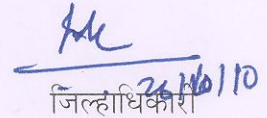 26/10/10
जिल्हाधिकारी